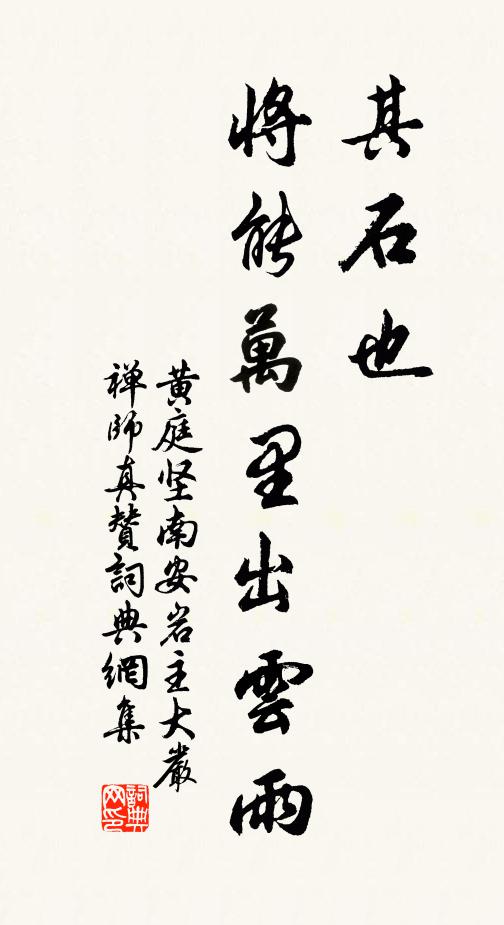 其石也
将能萬里出雲雨
黄庭坚南安岩主大嚴
禅師真贊詞典網集
詞典